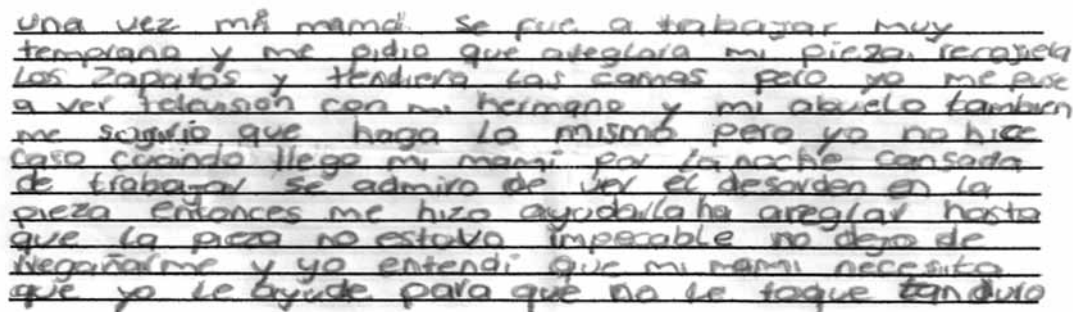 una vez mi mamá se fue a trabagar muy
temprano y me pidio que areglara mi pieza, recogiera
los zapatos y tendiera las camas pero yo me puse
a ver television con mi hermano y mi abuelo tambien
me sugirio que haga lo mismo pero yo no hice
caso cuando llego mi mami por la noche cansada
de trabagar se admiro de ver el desorden en la
pieza entonces me hizo ayudarla ha areglar hasta
que la pieza no estovo impecable no dego de
Regañarme y yo entendi que mi mami necesita
que yo le ayude para que no le toque tan duro